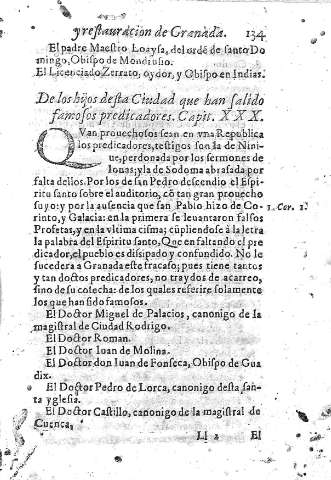 y restauracion de Granada. 134
El padre Maestro Loaysa, del ordē de santo Do
mingo, Obispo de Mondoñio.
El Licenciado Zerrato, oydor, y Obispo en Indias.
De los hijos desta Ciudad que han salido
famosos predicadores. Capit. XXX.
QVan prouechosos sean en vna Republica
los predicadores, testigos son la de Nini-
ue, perdonada por los sermones de
Ionas; y la de Sodoma abrasada por
falta dellos. Por los de san Pedro descendio el Espi
ritu santo sobre el auditorio, cō tan gran prouecho
suyo: y por la ausencia que san Pablo hizo de Co- 1. Cor. 1.
rinto, y Galacia: en la primera se leuantaron falsos
Profetas, y en la vltima cisma; cūpliendose à la letra
la palabra del Espiritu santo, Que en faltando el pre
dicador, el pueblo es disipado y confundido. No le
sucedera a Granada este fracaso; pues tiene tantos
y tan doctos predicadores, no traydos de acarreo,
sino de su cosecha: de los quales referire solamente
los que han sido famosos.
El Doctor Miguel de Palacios, canonigo de la
magistral de Ciudad Rodrigo.
El Doctor Roman.
El Doctor Iuan de Molina.
El Doctor don Iuan de Fonseca, Obispo de Gua
dix.
El Doctor Pedro de Lorca, canonigo desta san-
ta yglesia.
El Doctor Castillo, canonigo de la magistral de
Cuenca.
Ll 2 El